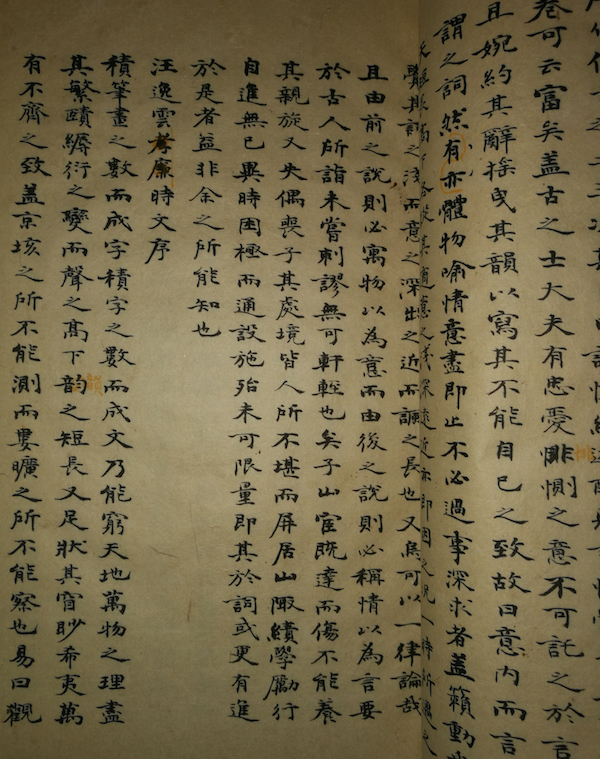 卷可云富矣蓋古之士大夫有忠愛悱惻之意不可託之於言
且婉約其辭搖曳其韻以寫其不能自已之致故曰意內而言
謂之詞然有亦體物喻情意盡即止不必過事深求者蓋籟動
其詞之淺而意之深出之近而諷之長也又烏可以一律論哉
且由前之說則必寓物以為意而由後之說則必稱情以為言要
於古人所詣未嘗刺謬無可軒輊也矣子山宦既達而傷不能養
其親旋又失偶喪子其處境皆人所不堪而屏居山陬績學勵行
自進無已異時困極而通設施殆未可限量即其於詞或更有進
於是者益非余之所能知也
汪逸雲孝廉時文序
積筆畫之數而成字積字之數而成文乃能窮天地萬物之理盡
其繁賾縟衍之變而聲之高下韵之短長又足狀其窅眇希夷萬
有不齊之致蓋京垓之所不能測而婁曠之所不能察也易曰觀